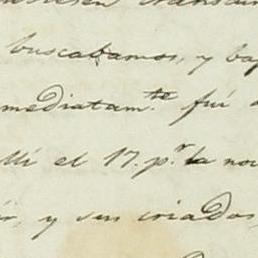 buscabamos, y ba
mediatam.te fui
lli el 17. p.r la no
y sus criados,